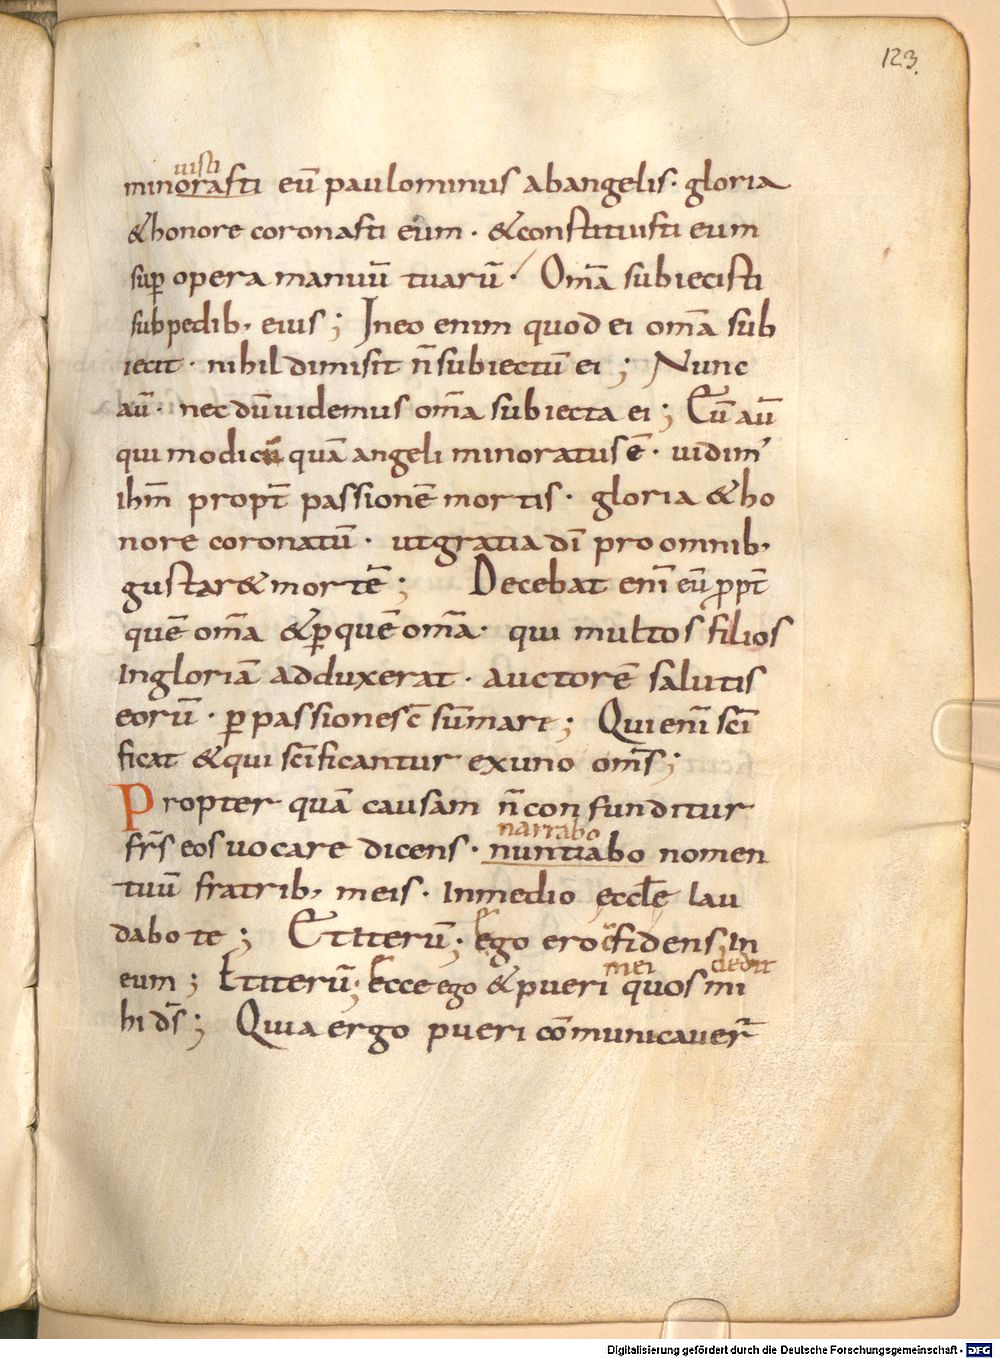 123.
uisti
minorasti eū paulominus abangelis· gloria
&honore coronasti eum· &constituisti eum
sup̄ opera manuū tuarū· Om̄a subiecisti
subpedib, eius; Ineo enim quod ei om̄a sub
iecit· nihil dimisit n̄subiectū ei; Nunc
aū· necdūuidemus om̄a subiecta ei; Eū aū
qui modicū quā angeli minoratus ē· uidim'
ihm̄ propt̄ passionē mortis· gloria &ho
nore coronatū· utgratia dī pro omnib,
gustar& mortē; Decebat enī eū ꝓpt̄
quē om̄a &ꝑquē om̄a· qui multos filios
Ingloriā adduxerat· auctorē salutis
eorū· ꝑpassionesc̄ sūmare; Qui enī sc̄i
ficat &qui sc̄ificantur exuno om̄s;
Propter quā causam n̄confunditur
narrabo
fr̄s eos uocare dicens· nuntiabo nomen
tuū fratrib, meis· Inmedio eccl̄e lau
dabo te; Etiterū; Ego ero c̄fidens in
mei dedit
eum; Etiterū; Ecce ego &pueri quos mi
hi ds̄; Quia ergo pueri cōmunicauer̄
Digitalisierung gefördert durch die Deutsche Forschungsgemeinschaft - DFG